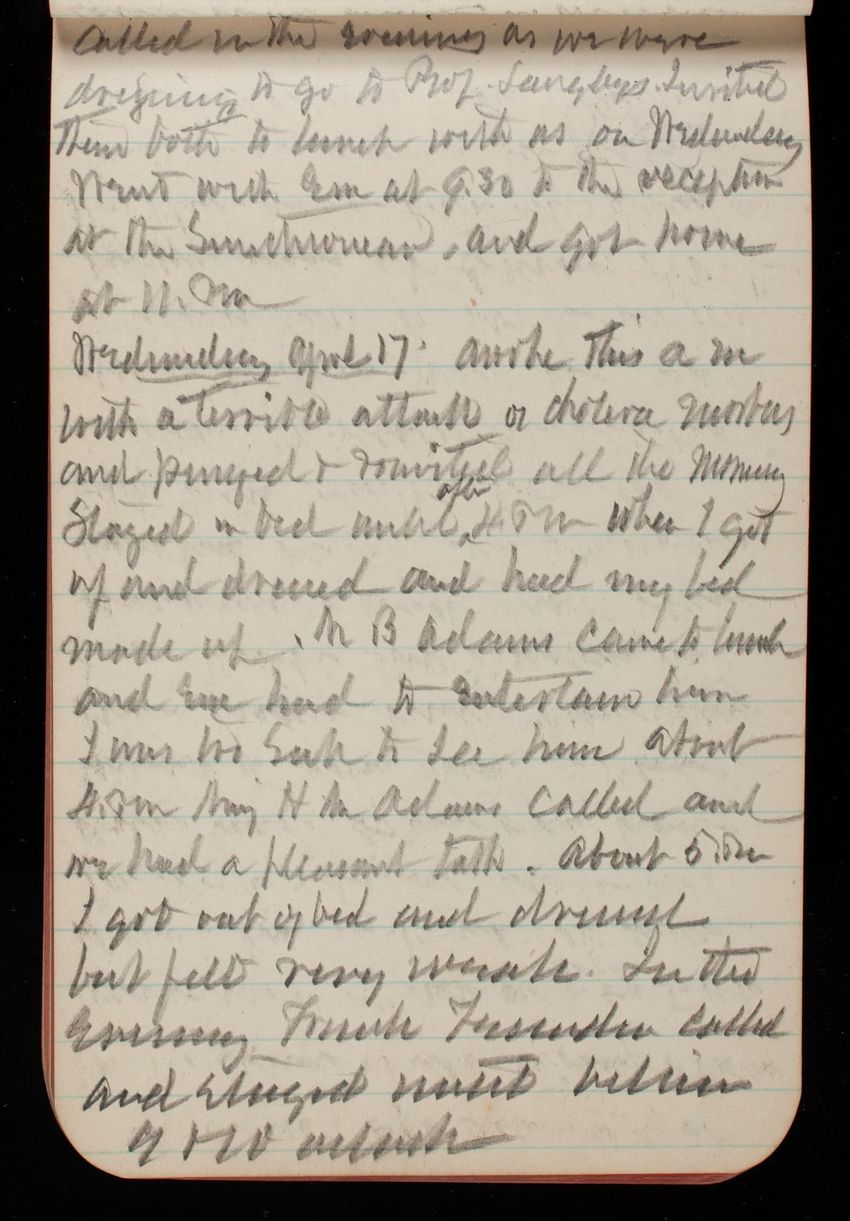 called in the evening as we were
dressing to go to Prof Langleys. Invited
them both to lunch with us on Wednesday
Went with Em at 9.30 to the reception
at the Smithsonian, and got home
at 11. Pm
Wednesday April 17. awoke this a m
with a terrible attack of cholera morbus
and purged & vomited all the morning
Stayed in bed until after 4 P m when I got
up and dressed and had my bed
made up. Mr B Adams came to lunch
and Em had to entertain him
I was too sick to see him about
4. Pm Adams called and
we had a pleasant talk. About 5. Pm
I got out of bed and dressed
but felt very weak. In the
Evening Frank called
and stayed until between
9 & 10 oclock